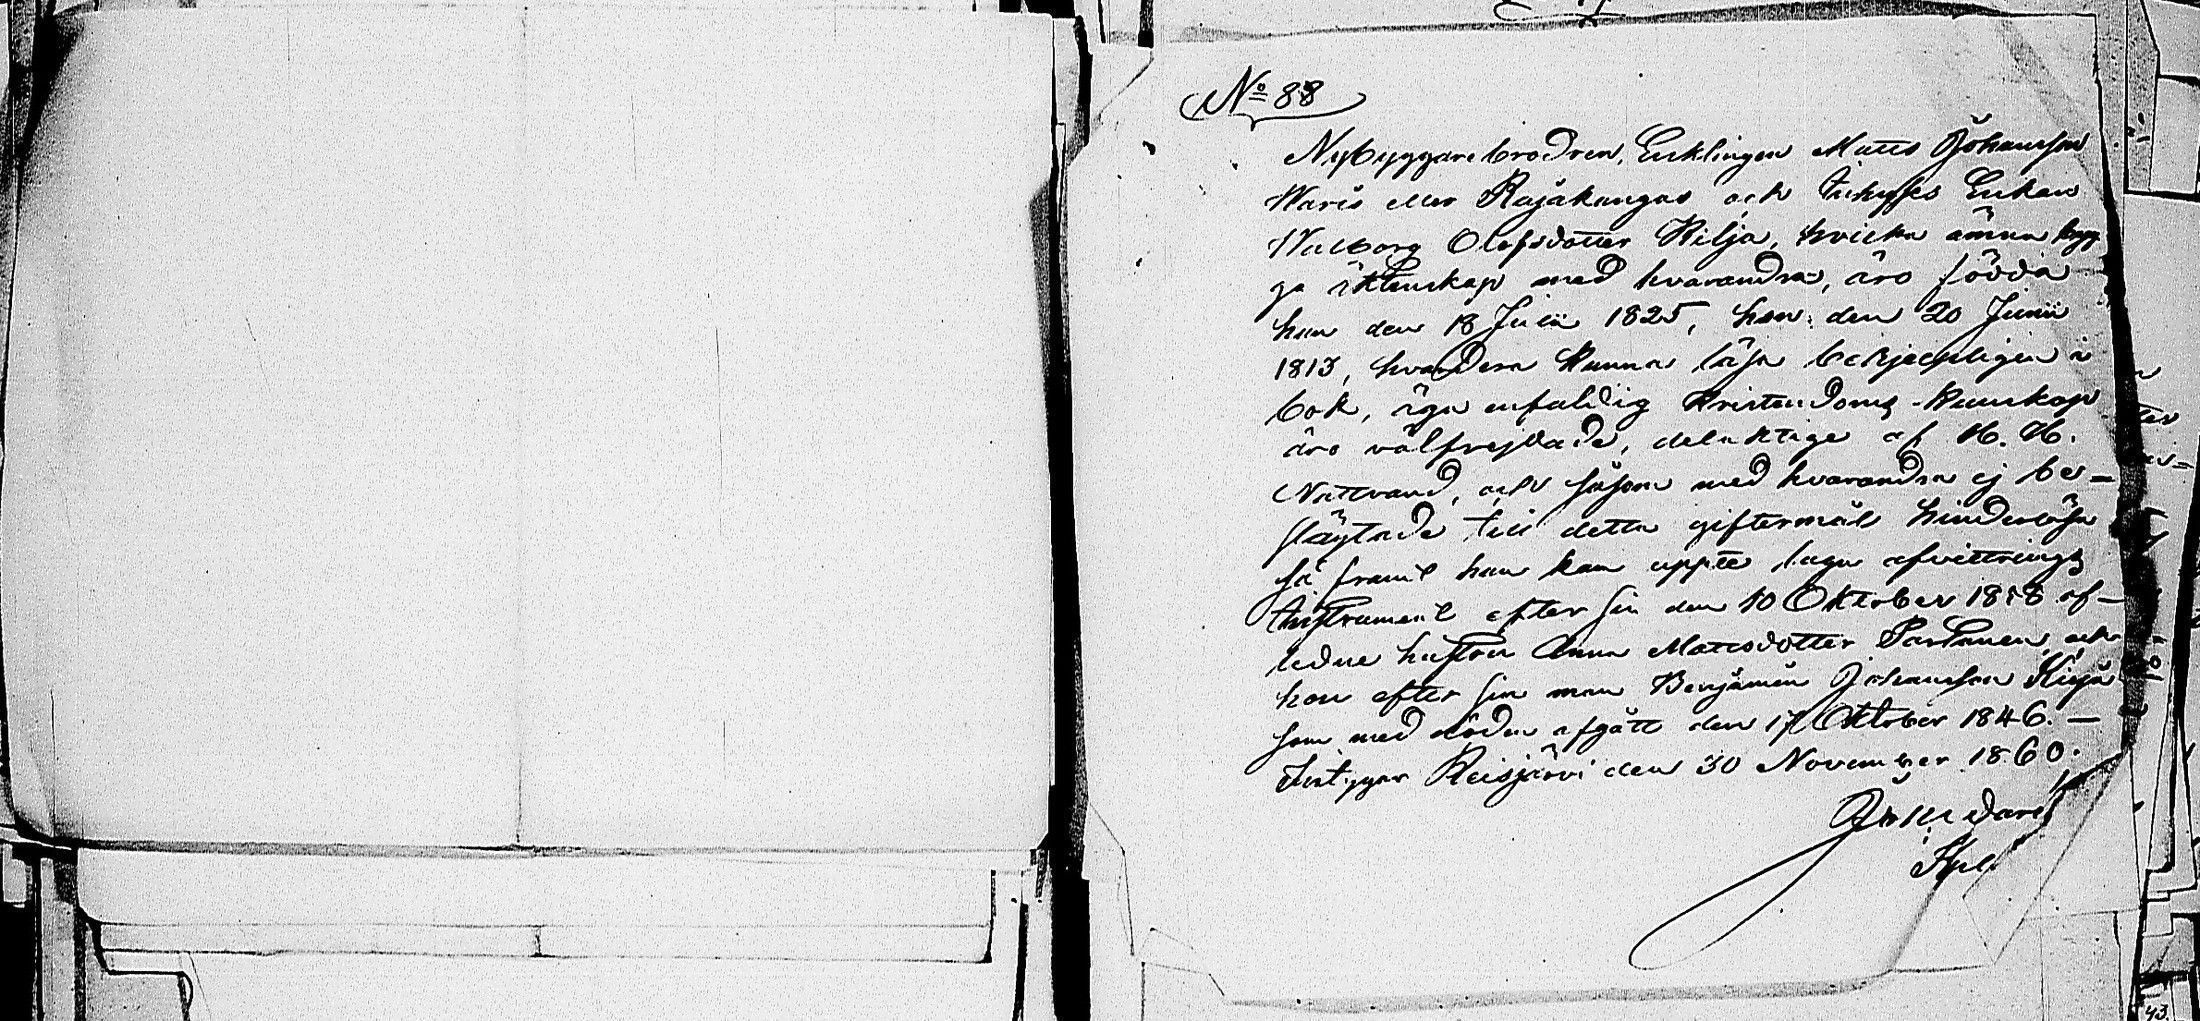 No 88
Nybyggarebrodren, Enklingen Matts Johansson
Waris eller Rajakangas och Inhyses Enkan
Walborg Olofsdotter Kilja, hvicka ämna bygg
ga äktenskap med hvarandra, äro födda
han den 18 Julii 1825, hon: den 20 Junii
1813, hvardera kunna läsa behjelpligen i
bok, äga enfaldig Kristendoms-kunskap
äro välfrejdade, delaktige af H. H.
Nattvard, och såsom med hvarandra ej be-
slägtade till detta giftermål hinderlösa
så framt han kan uppte laga afvittrings
Instrument efter sin den 10 Oktober 1858 af-
lidne hustru Anna Mattsdotter Partanen, och
hon efter sin man Benjamin Johansson Kilja
som med döden afgått den 17 Oktober 1846. —
Intygar Reisjärvi den 30 November 1860.